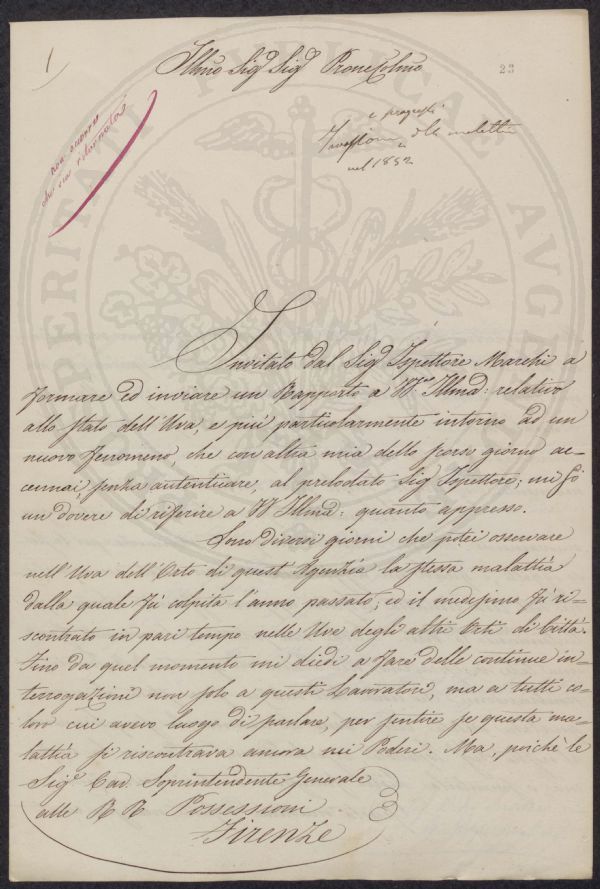 1
Illmo Sig.r Sig.r Prone Colmo
23
non ancora
che sia ritornato
e progressi
Invasione della malattia
nel 1852
PERITAT PUBLICAE AUGE
Invitato dal Sig.r Ispettore Marchi a
formare ed inviare un Rapporto a VS. Illma: relativo
allo stato dell'Uva, e più particolarmente intorno ad un
nuovo fenomeno, che con altra mia dello scorso giorno ac=
cennai, senza autenticare, al prelodato Sig. Ispettore; mi fò
un dovere di riferire a VS Illma: quanto appresso.
Sono diversi giorni che potei osservare
nell'Uva dell'Orto di quest'Agenzia la stessa malattia
dalla quale fù colpita l'anno passato; ed il medesimo fù ri=
scontrato in pari tempo nelle Uve degli altri Orti di Città.
Fino da quel momento mi diedi a fare delle continue in=
terrogazioni non solo a questi Lavoratori, ma a tutti co=
loro cui avevo luogo di parlare, per sentire se questa ma=
lattia si riscontrava ancora nei Poderi. Ma, poichè le
Sig.r Cav. Soprintendente Generale
alle R R Possessioni
Firenze